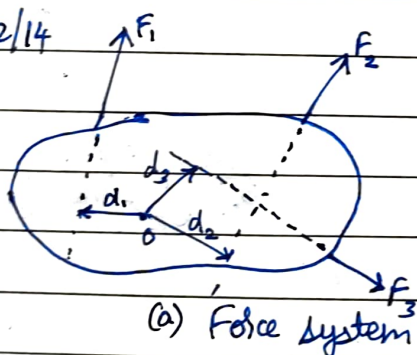 2/14
F₁
F₂
d₃
d₁
d₂
O
F₃
(a) Force system